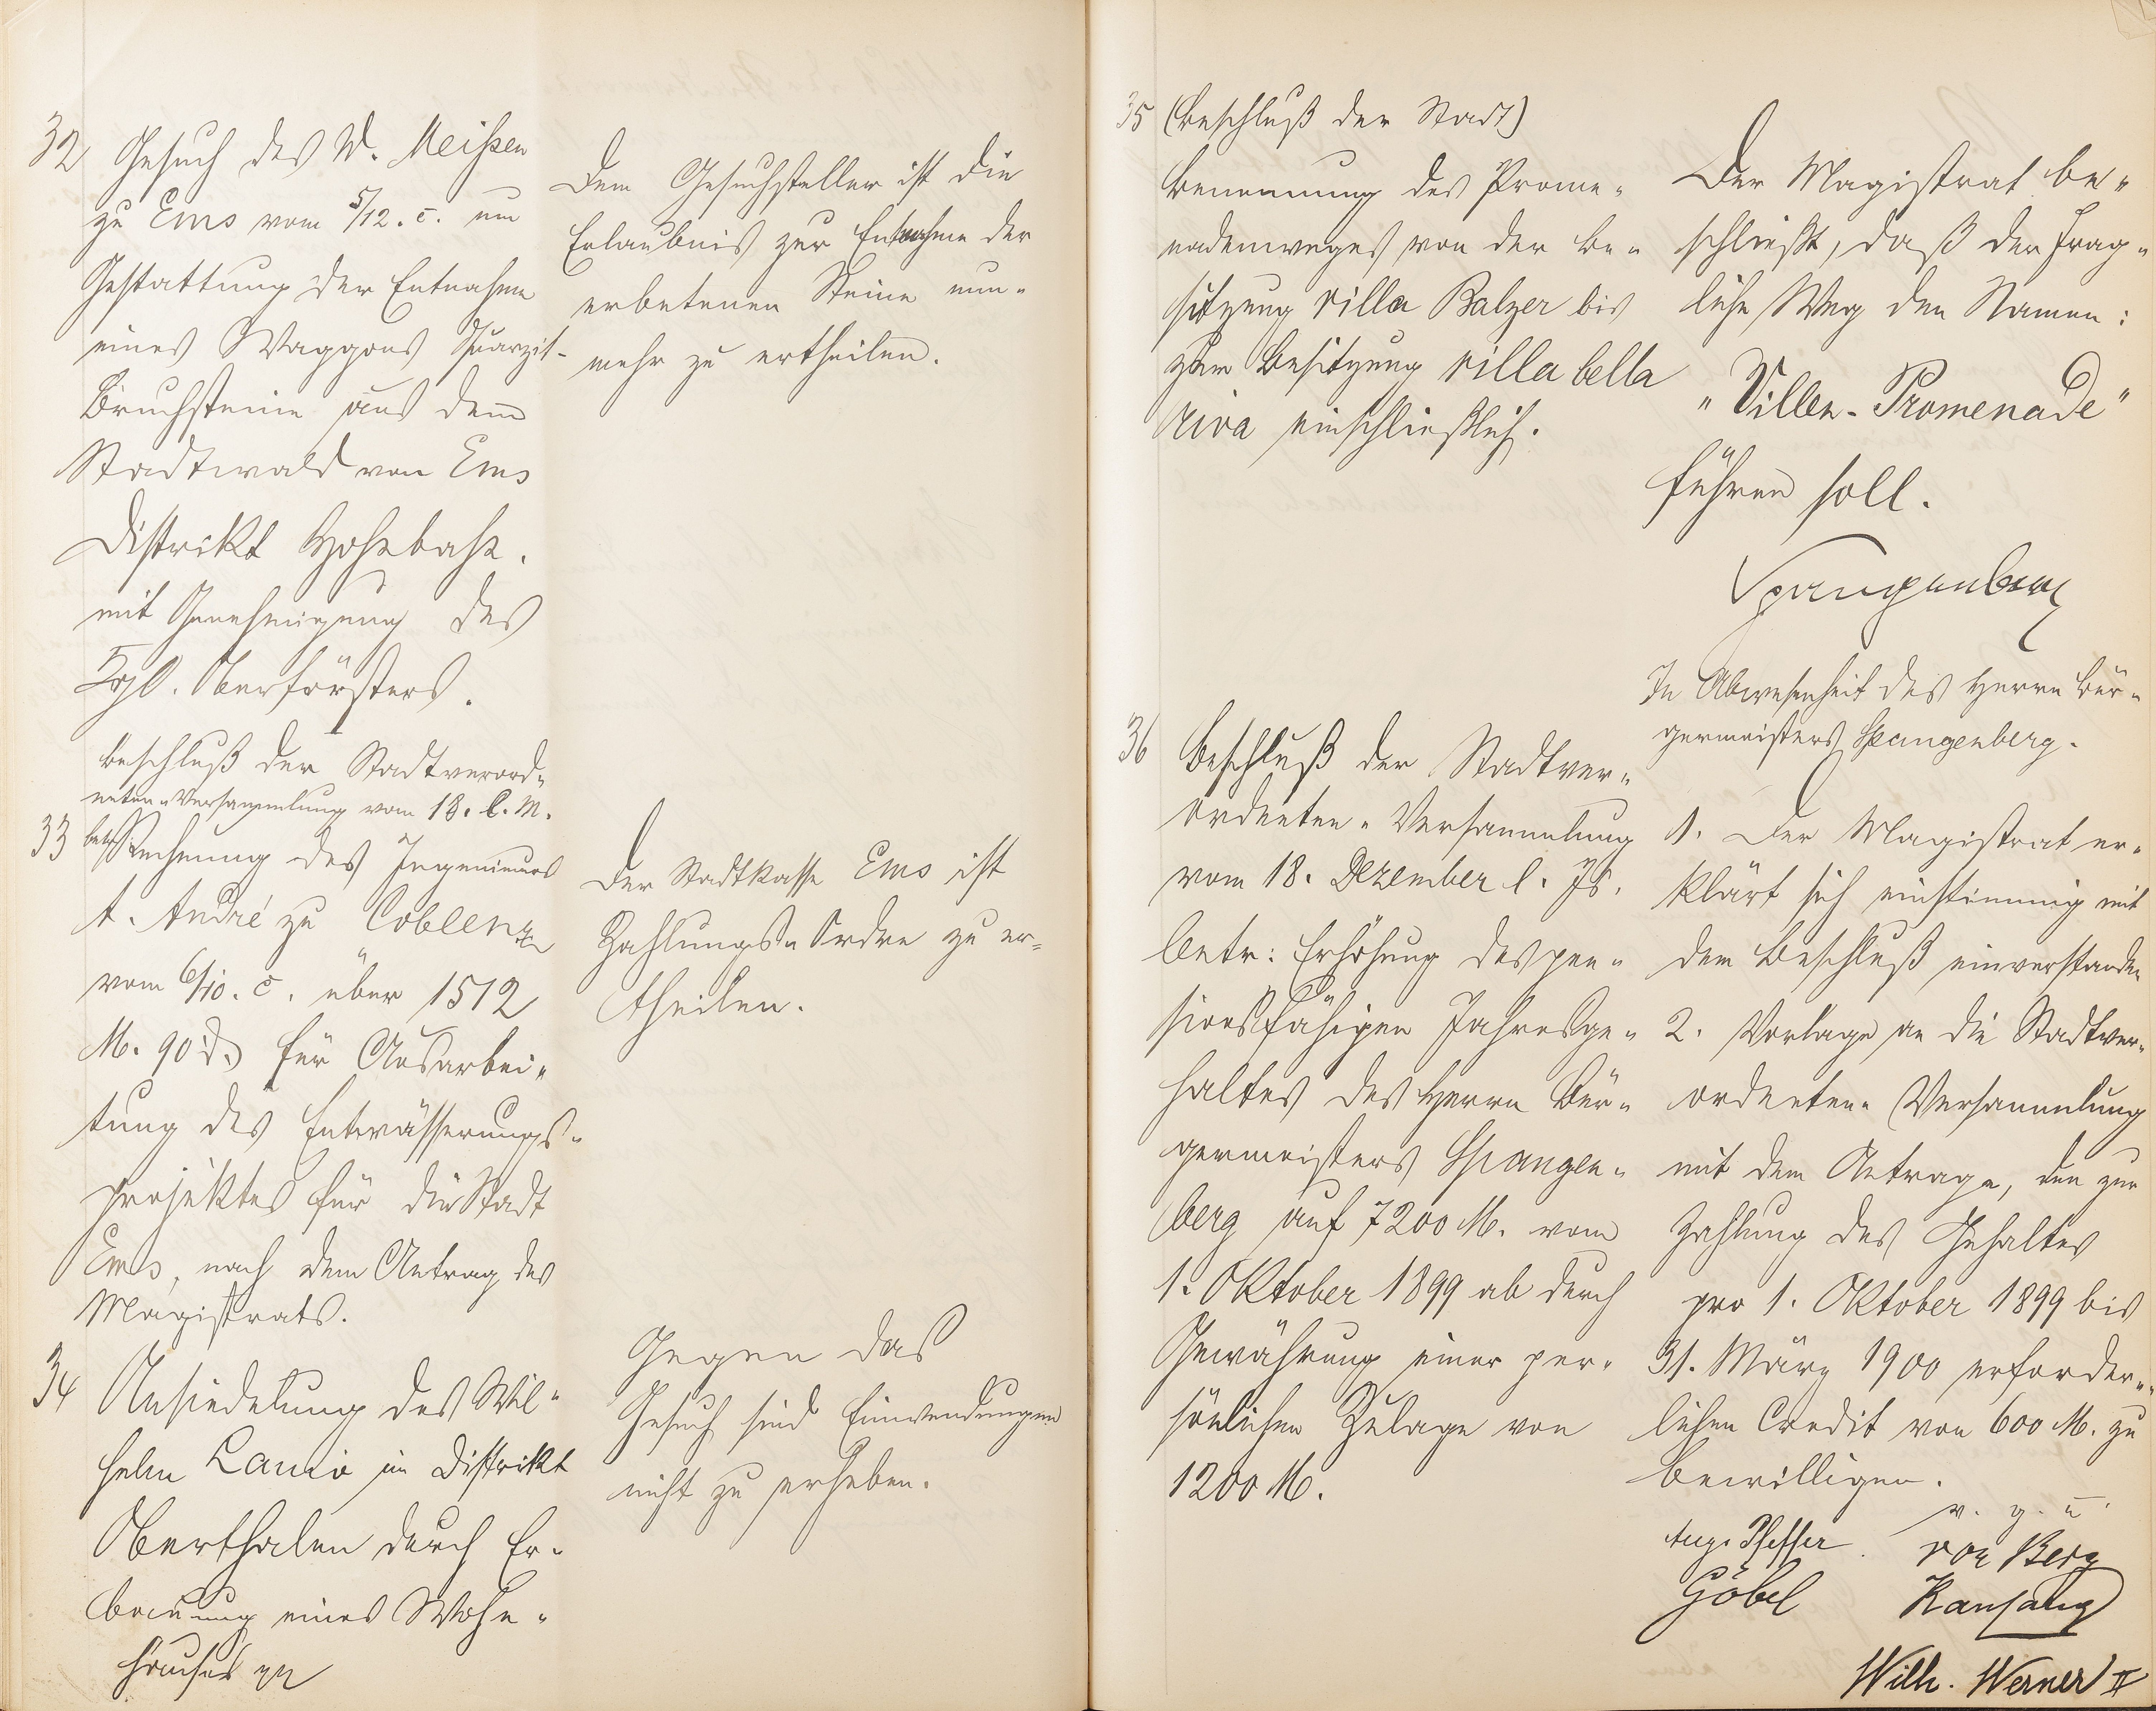 32 Gesuch des W. Meißen
zu Ems vom 5/12. c. um
Gestattung der Entnahme
eines Waggons Quarzit-
Bruchsteine aus dem
Stadtwald von Ems
Distrikt Hohebahn.
mit Genehmigung des
Kgl. Oberförsters.
Dem Gesuchsteller ist die
Erlaubnis zur Entnahme der
erbetenen Steine nun-
mehr zu ertheilen.
Beschluß der Stadtverord-
neten-Versammlung vom 18. l. M.
33 betr. Rechnung des Ingenieurs
A. André zu Coblenz
vom 6/10. c. über 1512
M. 90 d. für Ausarbei-
tung des Entwässerungs-
projektes für die Stadt
Ems, nach dem Antrag des
Magistrats.
Der Stadtkasse Ems ist
Zahlungs-Ordre zu er-
theilen.
34 Ansiedelung des Wil-
helm Lanio im Distrikt
Oberthalen durch Er-
bauung eines Wohn-
hauses
Gegen das
Gesuch sind Einwendungen
nicht zu erheben.
35 (Beschluß der Stadt)
Benennung des Prome-
nadenweges von der Be-
sitzung Villa Balzer bis
zur Besitzung Villa bella
riva einschließlich.
Der Magistrat be-
schließt, daß der frag-
liche Weg den Namen:
"Villen-Promenade"
führen soll.
Spangenberg
36 Beschluß der Stadtver-
ordneten-Versammlung
vom 18. Dezember l. Js.
betr: Erhöhung des pen-
sionsfähigen Jahresge-
haltes des Herrn Bür-
germeisters Spangen-
berg auf 7200 M. vom
1. Oktober 1899 ab durch
Gewährung einer per-
sönlichen Zulage von
1200 M.
In Abwesenheit des Herrn Bür-
germeisters Spangenberg.
1. Der Magistrat er-
klärt sich einstimmig mit
dem Beschluß einverstanden
2. Vorlage an die Stadtver-
ordneten-Versammlung
mit dem Antrage, den zur
Zahlung des Gehaltes
pro 1. Oktober 1899 bis
31. März 1900 erforder-
lichen Credit von 600 M. zu
bewilligen.
v. g. u.
Aug. Pfeffer von Berg
Göbel
Wilh. Werner II